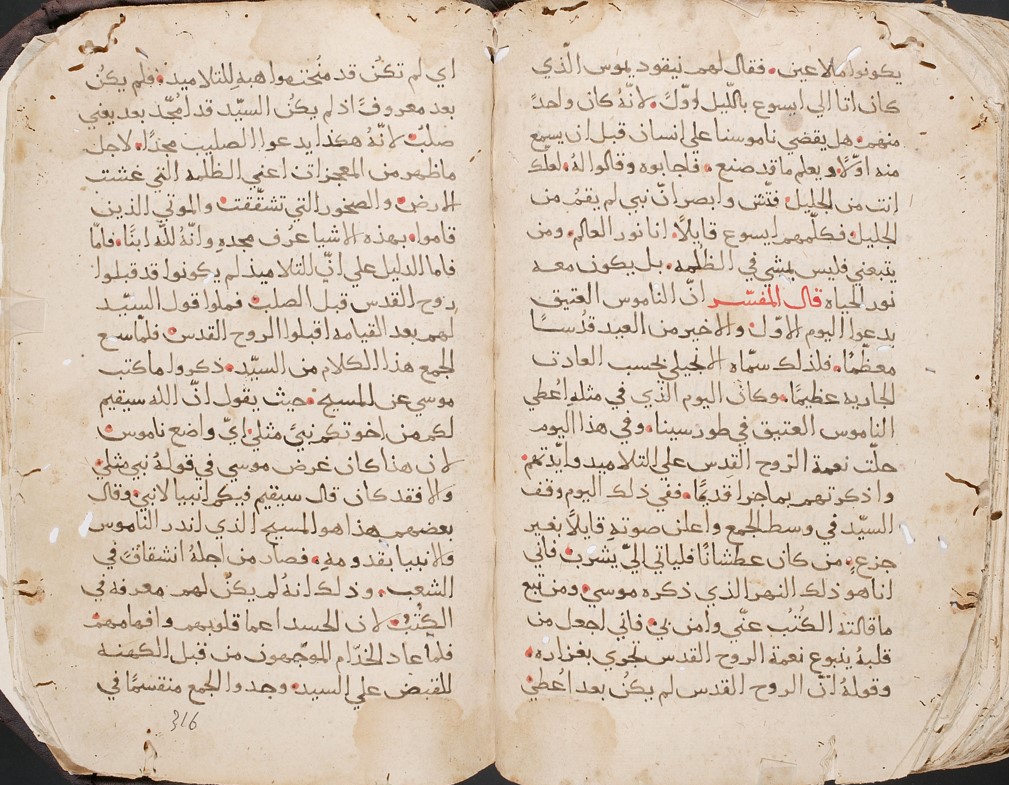 يكونوا ملاعين. فقال لهم نيقوديموس الذي
كان اتا الي ايسوع بالليل اوّلاً. لانّهُ كان واحدً
منهم. هل يقضي ناموسنا علي انسان قبل ان يسمع
منه اوّلاً. ويعلم ما قد صنع. فاجابوه وقالوا لهُ. لعلك
انت من الجليل. فتّش وابصر انّ نبي لم يقمُ من
الجليل. فكلّمهم ايسوع قايلاً. انا نور العالم. ومن
يتبعني فليس يمشي في الظلمه. بل يكون معه
نور الحياه قال المفسّر انّ الناموس العتيق
يدعوا اليوم الاوّل والاخير من العيد قدُسًا
معظّمًا. فلذلك سمّاه الانجيلي بحسب العادة
الجاريه عظيمًا. وكان اليوم الذي في مثلهِ اُعطي
الناموس العتيق في طور سينا. وفي هذا اليوم
حلّت نعمة الروح القدس علي التلاميد وايّدتهم.
واذكرتهم بما جرا قديمًا. ففي ذلك اليوم وقف
السيّد في وسط الجمع واعلن صوتهِ قايلاً بغير
جزعٍ. من كان عطشانًا فلياتي اليّ يشرب. فاني
انا هو ذلك النهر الذي ذكره موسي. ومن تبع
ما قالته الكُتُب عنّي وامن بي. فاني اجعل من
قلبهُ ينبوع نعمة الروح القدس تجري بغزاره.
وقولهُ انّ الروح القدس لم يكنُ بعد اُعطي.
اي لم تكن قد مُنحت مواهبهِ للتلاميد. فلم يكنُ
بعد معروفً اذ لم يكنُ السيّد قد اُمجّد بعد يعني
صلب. لانّهُ هكذا يدعوا الصليب مجدًا. لاجل
ما ظهر من المعجزات اعني الظلمه التي غشت
الارض. والصخور التي تشقّقت. والموتي الذين
قاموا. بهذه الاشيا عرُف مجدهِ وانّهُ للّه ابنًا. فامّا
فاما الدليل علي انّ التلاميذ لم يكونوا قد قبلوا
روح القدس قبل الصلب. فملوا قول السيّد
لهم بعد القيامه اقبلوا الروح القدس. فلمّا سمع
الجمع هذا الكلام من السيّد. ذكروا ما كتب
موسي عن المسيح. حيث يقول انّ الله سيقيم
لكم من اخوتكم نبيّ مثلي. ايّ واضع ناموس.
لان هذا كان غرض موسي في قولهُ نبي مثلي.
والا فقد كان قال سيقيم فيكم انبيا لا نبي. وقال
بعضهم هذا هو المسيح الذي انذر الناموس
والانبيا بقدومهِ. فصار من اجلهُ انشقاقً في
الشعب. وذلك انهُ لم يكنُ لهم معرفه في
الكُتُب. لان الحسد اعما قلوبهم وافهامهم.
فلما عاد الخدّام الموجّهون من قبل الكهنه
للقبض علي السيد. وجدوا الجمع منقسمًا في
316